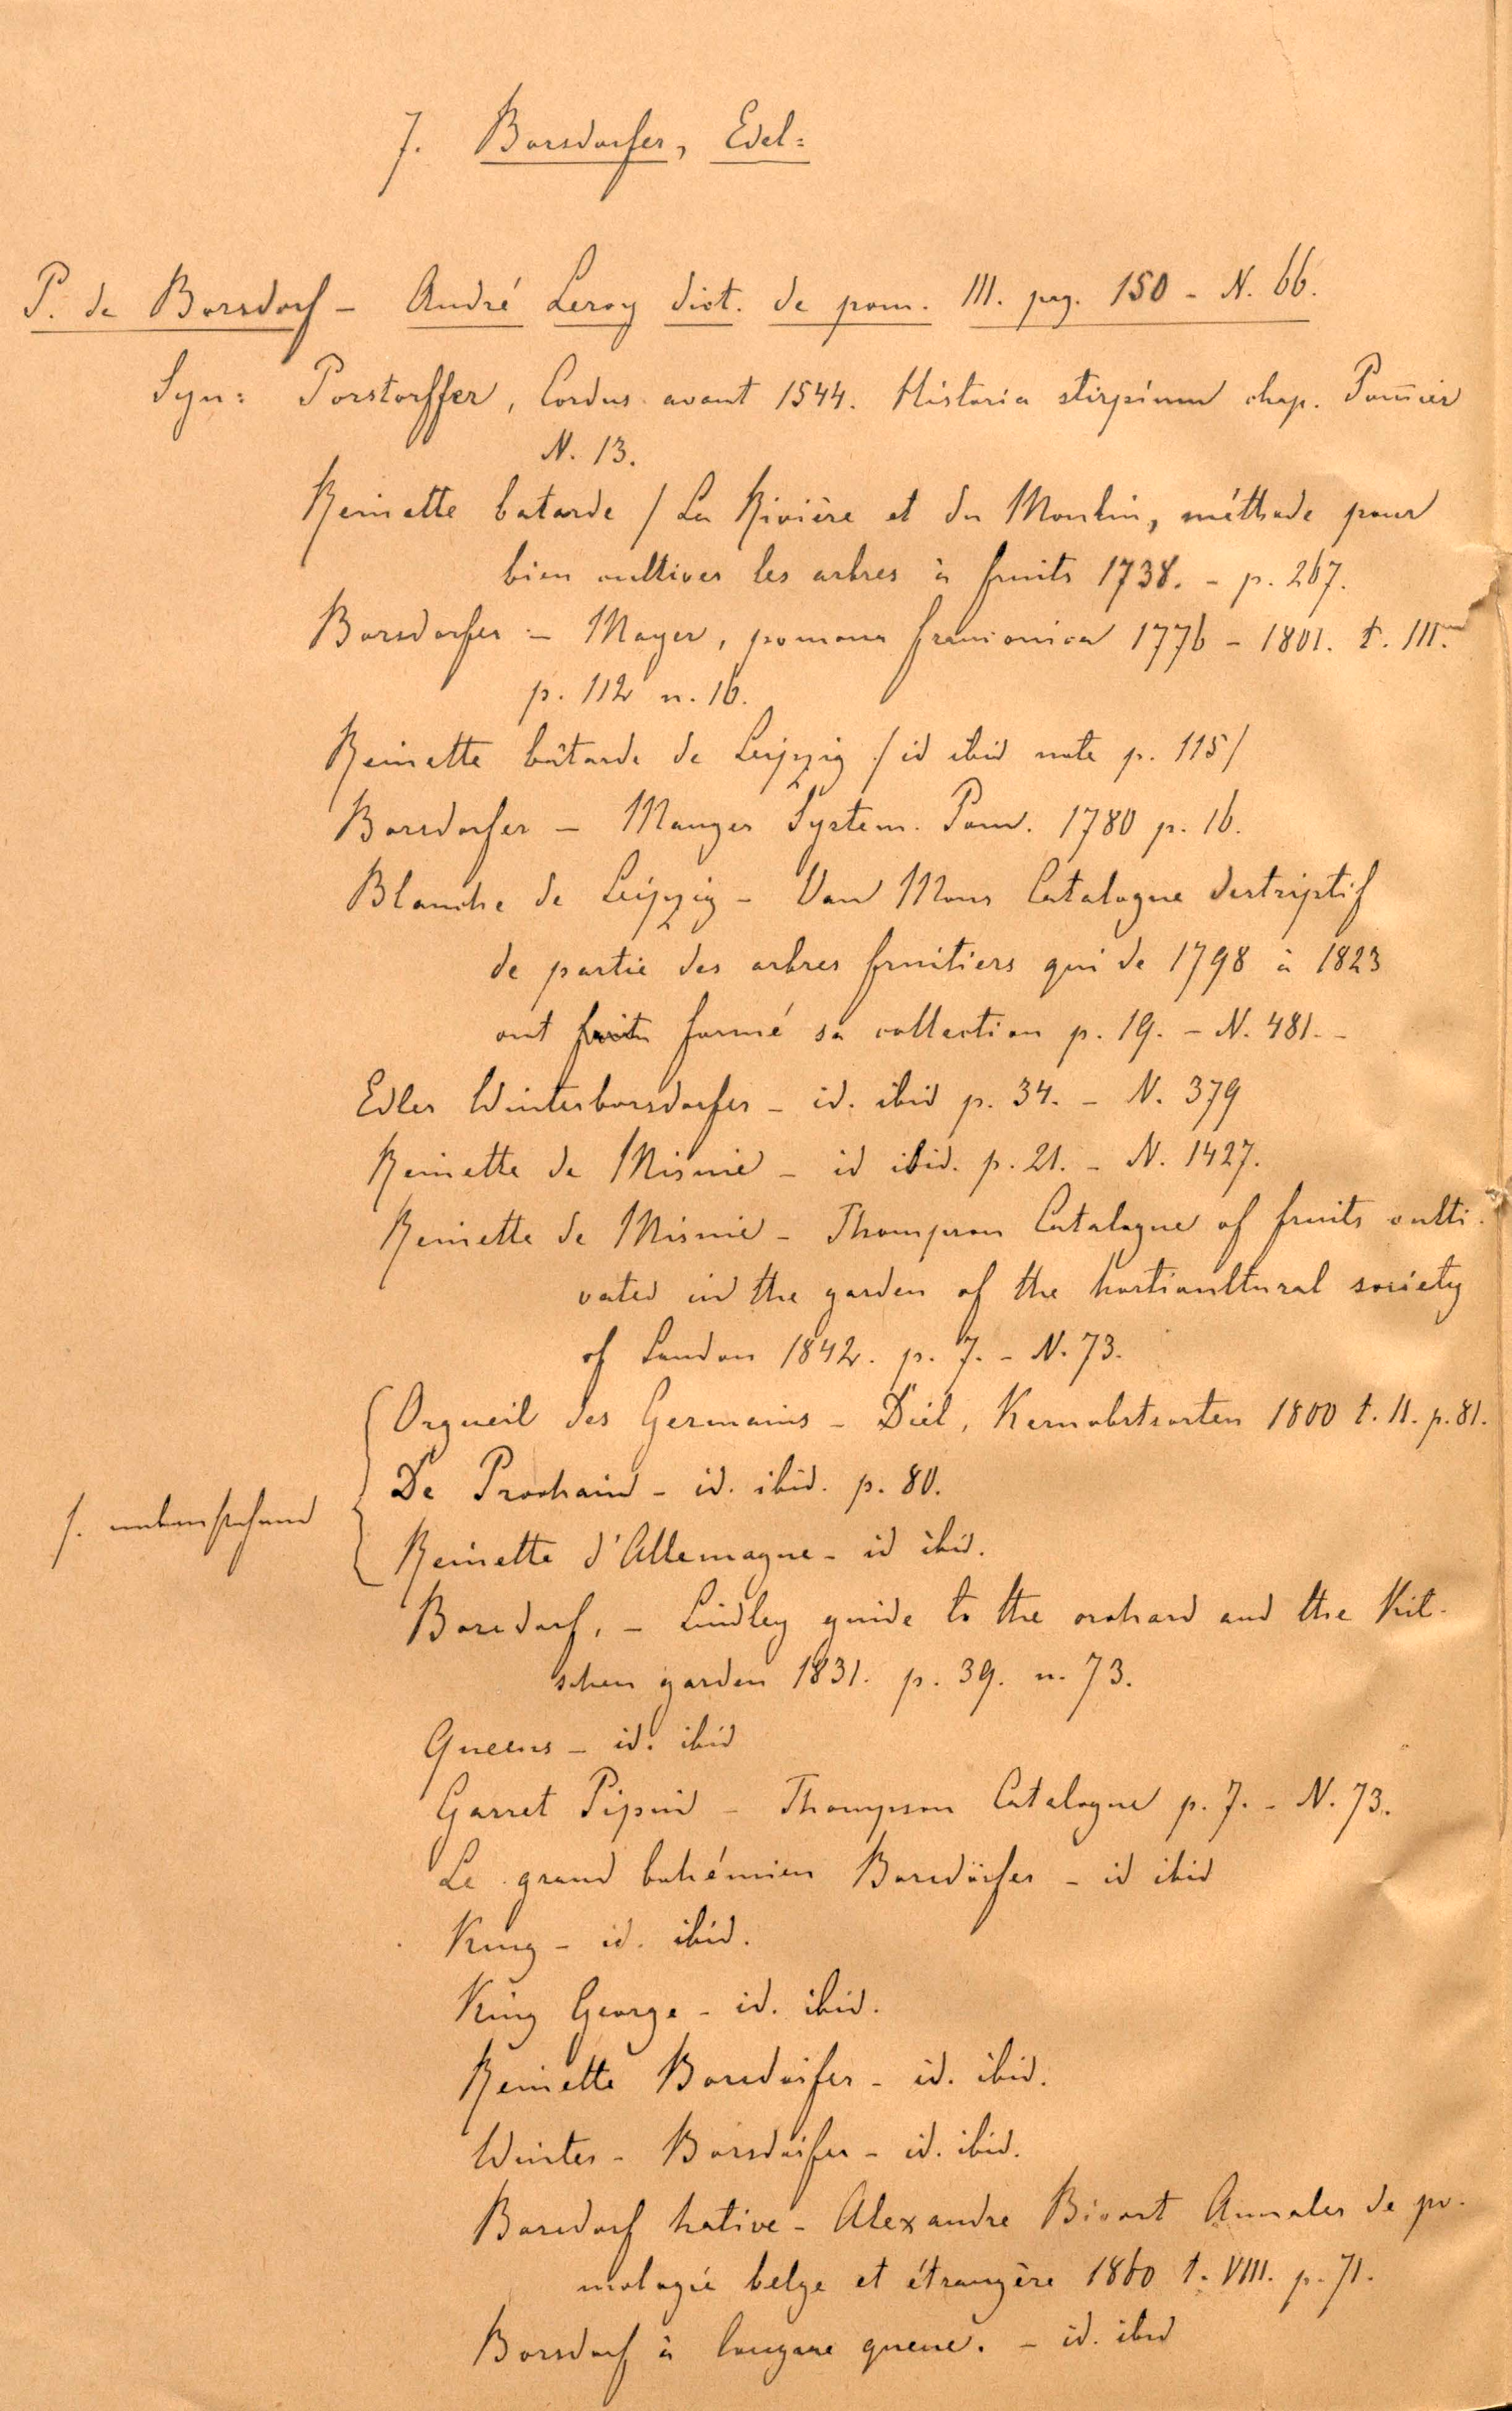 7. Borsdorfer, Edel=
P. de Borsdorf - André Leroy dict. de pom. III. pag. 150 - N. 66.
Syn: Porstorffer, Cordus avant 1544. Historia stirpium chap. Pom̄ier
N. 13.
Reinette batarde / La Rivière et du Moulin, méthode pour
bien cultiver les arbres à fruits 1738. - p. 267.
Borsdorfer - Mayer, pomona franconica 1776 - 1801. t. III.
p. 112 n. 16.
Reinette bâtarde de Leipzig / id ibid note p. 115/
Borsdorfer - Manger System. Pom. 1780 p. 16.
Blanche de Leipzig - Van Mons Catalogue destriptif
de partie des arbres fruitiers qui de 1798 à 1823
ont formé sa collection p. 19. - N. 481. -
Edler Winterborsdorfer - id. ibid p. 34. - N. 379
Reinette de Misnie - id ibid. p. 21. - N. 1427.
Reinette de Misnie - Thompson Catalogue of fruits culti-
vated in the garden of the horticultural society
of London 1842. p. 7. - N. 73.
Orgueil des Germains - Diel, Kernobstsorten 1800 t. II. p. 81.
De Prochain - id. ibid. p. 80.
s. untenstehend
Reinette d'Allemagne - id ibid.
Borsdorf, - Lindley guide to the orchard and the Kit-
schen garden 1831. p. 39. n. 73.
Queens - id. ibid
Garret Pipin - Thompson Catalogue p. 7. - N. 73.
Le grand bohémien Borsdörfer - id ibid
King - id. ibid.
King George - id. ibid.
Reinette Borsdörfer - id. ibid.
Winter - Borsdörfer - id. ibid.
Borsdorf hative - Alexandre Bivort Annales de po-
mologie belge et étrangère 1860 t. VIII. p. 71.
Borsdorf à longue queue. - id. ibid